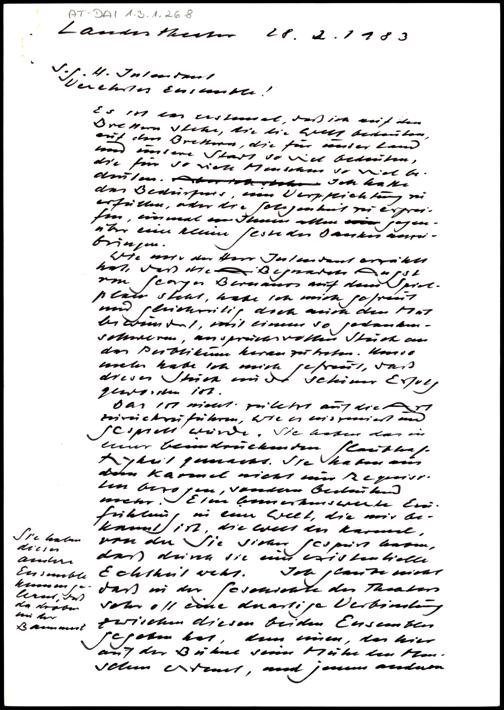 AT-DAI 1.3.1.268
Landestheater 28.2.1983
S.g. H. Intendant
Verehrtes Ensemble!
Es ist das erstemal, daß ich auf den
Brettern stehe, die die Welt bedeuten,
auf den Brettern, die für unser Land
und unsere Stadt so viel bedeuten,
die für so viele Menschen so viel be-
deuten. Ich habe
das Bedürfnis, eine Verpflichtung zu
erfüllen, oder die Gelegenheit zu ergrei-
fen, einmal Ihnen allen gegen-
über eine kleine Geste des Dankes anzu-
bringen.
Wie mir der Herr Intendant erzählt
hat, daß die Begnadete Angst
von Georges Bernanos auf dem Spiel-
plan steht, habe ich mich gefreut
und gleichzeitig doch auch den Mut
bewundert, mit einem so gedanken-
schweren, anspruchsvollen Stück an
das Publikum heranzutreten. Umso
mehr habe ich mich gefreut, daß
dieses Stück ein schöner Erfolg
geworden ist.
Das ist nicht zuletzt auf die Art
zurückzuführen, wie es inszeniert und
gespielt wurde. Sie haben das in
einer beeindruckenden Glaubhaf-
tigkeit gemacht. Sie haben aus
dem Karmel nicht nur Requisi-
ten bezogen, sondern bedeutend
mehr. Eine bemerkenswerte Ein-
fühlung in eine Welt, die mir be-
kannt ist, die Welt des Karmel,
von der Sie sicher gespürt haben,
daß durch sie eine existentielle
Echtheit weht. Ich glaube nicht
daß in der Geschichte des Theaters
sehr oft eine derartige Verbindung
zwischen diesen beiden Ensembles
gegeben hat, dem einen, das hier
auf der Bühne seine Mühe den Men-
schen widmet, und jenem anderen
Sie haben
dieses
andere
Ensemble
kennen ge-
lernt, das
da droben
in der